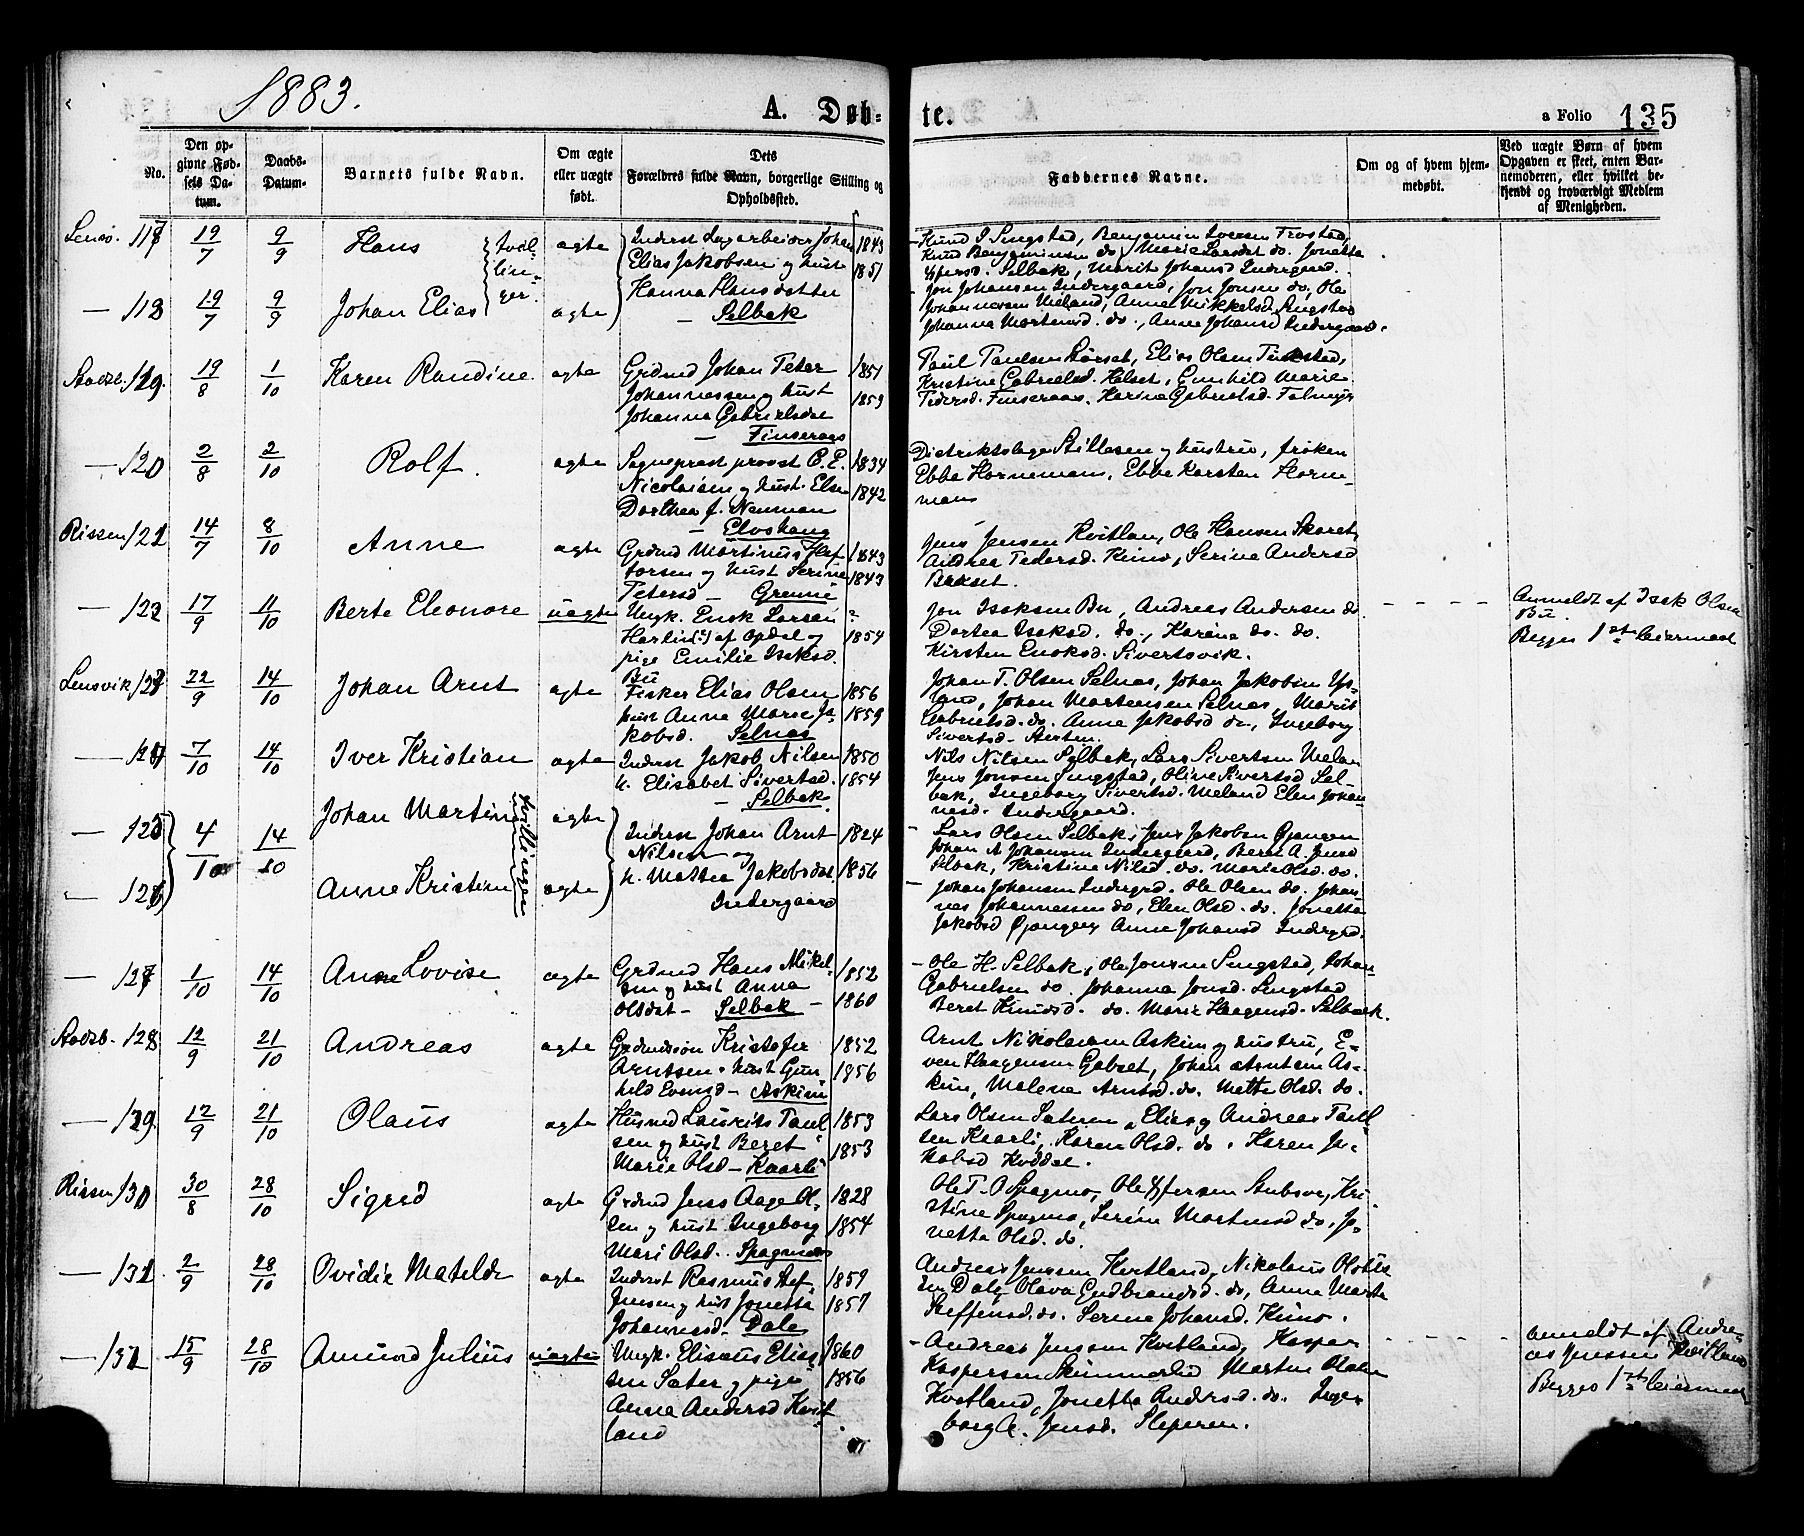 1883.
A. Døb-
te.
a Folio 135
No.
Den op-
givne Fød-
sels Da-
tum.
Daabs-
Datum.
Barnets fulde Navn.
Om ægte
eller uægte
født.
Dets
Forældres fulde Navn, borgerlige Stilling og
Opholdssted.
Faddernes Navne.
Om og af hvem hjem-
medøbt.
Ved uægte Børn af hvem
Opgaven er skeet, enten Bar-
nemoderen, eller hvilket be-
kjendt og troværdigt Medlem
af Menigheden.
117 19/7 9/9 Hans ægte
Elias Jakobsen og hust
1843
1851
Hanna Hansdatter
Selbek
Knud J Singstad, Benjamin Iversen Trostad,
Knud Benjaminsen do Marie Larsdt do. Jonetta
Selbek, Marit Johansd Indergaard.
118 19/7 9/9 Johan Elias ægte
Jon Johansen Indergaard, Jon Jonsen do, Ole
Johannesen Meland, Anne Mikkelsd Singstad
Johanna Mortensd. do., Anne Johansd Indergaard.
Stadsb. 119. 19/8 1/10 Karen Randine ægte
Grdmd Johan Peter
Johannessen og hust
Johanna Gabrielsdat
— Finseraas
1851
1859
Paul Paulsen Sørset, Elias Olsen
Kristine Gabrielsd. Helset, Gunhild Marie
Pedersd. Finseraas, Karine Gabrielsd.
— 120 2/8 2/10 Rolf. ægte
Sogneprest provst
Nicolaisen og hust. Else
Dorthea f. Neuman
1834
1842
Distriktslege Stillesen og hustru, frøken
Ebba Hornemann, Ebbe Karsten Horne-
mann
Rissen 121 14/7 8/10 Anne ægte
Grdmd Martinus Haf
torsen og hust Serine
Petersd — Grenne
1843
1843
Jens Jensen Kvitlan, Ole Hansen Skaret,
Andrea Pedersd. Rino, Serine Andersd
— 122 17/9 11/10 Berte Eleonore uægte
Ungk. Enok Larsen
af Opdal og
pige Emilie Isaksd.
Bu
1854
Jon Isaksen Bu, Andreas Andersen do
Dortea Isaksd. do., Karine do. do.
Kirsten Enoksd. Sivertsvik.
Anmeldt af Isak Olsen
Bu.
Begges 1ste leiermaal
Lensvik 123 22/9 14/10 Johan Arnt ægte
Fisker Elias Olsen
hust Anna Marie Ja-
kobsd. Selnas
1856
1859
Johan T. Olsen Selnas, Johan Jakobsen
Johan Martensen Selnas, Marit
Gabrielsd. do. Anne Jakobsd do, Ingeborg
Sivertsd.
— 124 7/10 14/10 Iver Kristian ægte
Inderst Jakob Nilsen
h. Elisabet Sivertsd.
— Selbek.
1850
1854
Nils Nilsen Selbek, Lars Sivertsen Melan
Jens Jonsen Singstad, Oline Sivertsd Sel-
bek, Ingeborg Sivertsd. Meland Elen Johan-
nesd. Indergaard.
— 125 4/10 14/10 Johan Martin tvillinger ægte
Inderst Johan Arnt
Nilsen og
h. Mattea Jakobsdat.
Indergaard
1824
1856
Lars Olsen Selbek, Jens Jakobsen Gjangen
Johan A Johansen Indergaard, Beret A. Jensd
Selbek, Kristine Nilsd. do. Marie Olsd. do.
— 126 Anne Kristine ægte
Johan Johansen Indergrd. Ole Olsen do. Johan
nes Johannessen do, Elen Olsd. do. Jonetta
Jakobsd Gjangen Anne Johansd Indergrd.
— 127 1/10 14/10 Anne Lovise ægte
Grdmd Hans Mikel-
sen og hust Anna
Olsdat — Selbek —
1852
1860
Ole H. Selbek, Ole Jonsen Singstad, Johan
Gabrielsen do. Johanna Jonsd. Singstad
Beret Knudsd. do. Marie Haagensd. Selbæk.
Stadsb. 128 12/9 21/10 Andreas ægte
Grdmdssøn Kristofer
Arntsen, hust Gun
hild Evensd — Askim
1852
1856
Arnt Nikolaisen Askim og hustru, E-
ven Haagensen Gabset, Johan Arntsen As-
kim, Malene Arntsd. do. Mette Olsd. do.
— 129. 12/9 21/10 Olaus ægte
Husmd Laurits Paul
sen og hust Beret
Marie Olsd — Kaarli
1853
1853
Lars Olsen Sateren, Elias og Andreas Paul-
sen Kaarli, Karen Olsd. do. Karen Ja-
kobsd
Rissen 130 30/8 28/10 Sigrid ægte
Grdmd Jens Aage Ol-
sen og hust Ingeborg
Mari Olsd. Spagmo
1828
1854
Stubsve, Kri-
stine Spagmo, Serine Mortensd do, Jo-
netta Olsd. do.
— 131 2/9 28/10 Ovidie Matilde ægte
Inderst Rasmus Stef
Jensen og hust Jonetta
Johannesd — Dale
1859
1857
Andreas Jenssen Kvitland, Nikolaus
Dale, Olava Gudbrandsd. do, Anne Marta
Steffensd. do. Serine Johansd. Rino.
— 132 15/9 28/10 Amund Julius uægte
Ungk. Eliseus Elias
sen Sæter og pige
Anna Andersd Kvit
land
1860
1856
Andreas Jenssen Kvitland, Kasper
Kaspersen Skimmelid Martin Olsen
Kvitland, Jonetta Andersd. do. Inge-
borg A. Jensd. Sleperen.
anmeldt af Andre-
as Jenssen Kvitland
Begges 1ste leiermaal